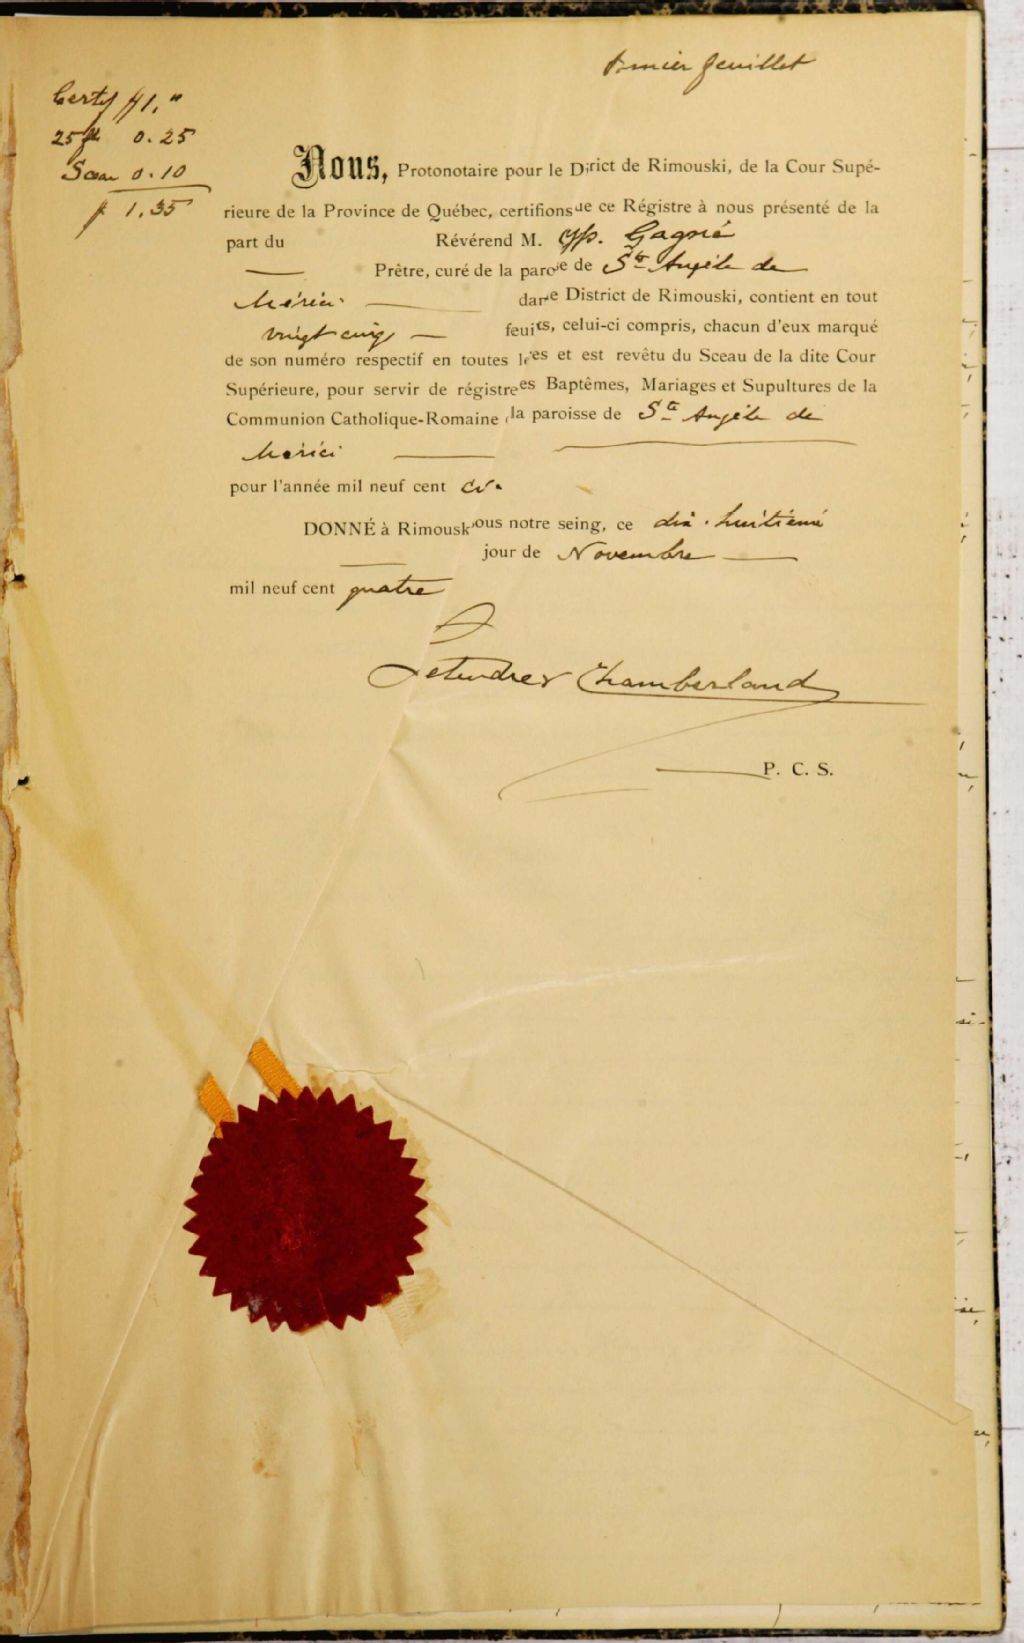 Premier feuillet
Certf $1."
25 fll 0.25
Sceau 0.10
$ 1.35
Nous, Protonotaire pour le Dirict de Rimouski, de la Cour Supé-
rieure de la Province de Québec, certifions ue ce Régistre à nous présenté de la
part du Révérend M. Gagné
Prêtre, curé de la paroie de Ste Angèle de
Mérici dane District de Rimouski, contient en tout
vingt cinq feuits, celui-ci compris, chacun d'eux marqué
de son numéro respectif en toutes lees et est revêtu du Sceau de la dite Cour
Supérieure, pour servir de régistrees Baptêmes, Mariages et Supultures de la
Communion Catholique-Romaine la paroisse de Ste Angèle de
Mérici
pour l'année mil neuf cent
DONNÉ à Rimouskous notre seing, ce dix-huitième
jour de Novembre
mil neuf cent quatre
Letendre & Chamberland
P. C. S.